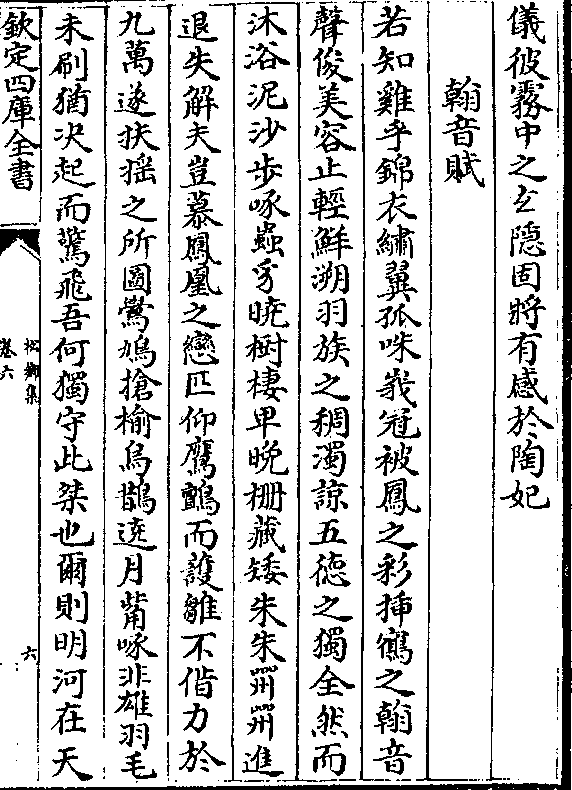 儀彼霧中之玄隱固將有感於陶妃
翰音賦
若知雞乎錦衣繡翼孤咮峩冠被鳳之彩挿鶡之翰音
聲俊美容止輕鮮溯羽族之稠濁諒五德之獨全然而
沐浴泥沙步啄蟲豸曉樹棲卑晚栅藏矮朱朱喌喌進
退失解夫豈慕鳳凰之戀匹仰鷹鸇而護雛不偕力於
九萬遂扶摇之所圖鷽鳩搶榆烏鵲遶月觜啄非雄羽毛
未刷猶决起而驚飛吾何獨守此桀也爾則明河在天
欽定四庫全書
松鄉集
卷六
六